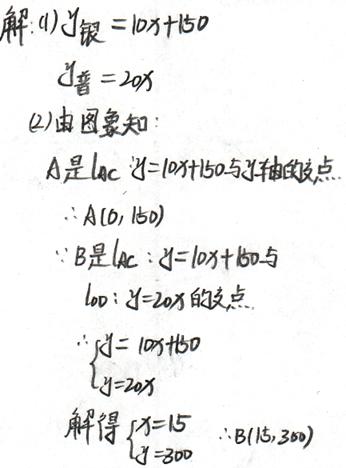 解:(1) y银 = 10x+150
y普 = 20x
(2)由图象知:
A是lAC:y=10x+150与y轴的交点.
∴A(0,150)
∵B是lAC:y=10x+150与
lOD:y=20x的交点.
∴{y=10x+150
y=20x
解得{x=15
y=300 ∴B(15,300)